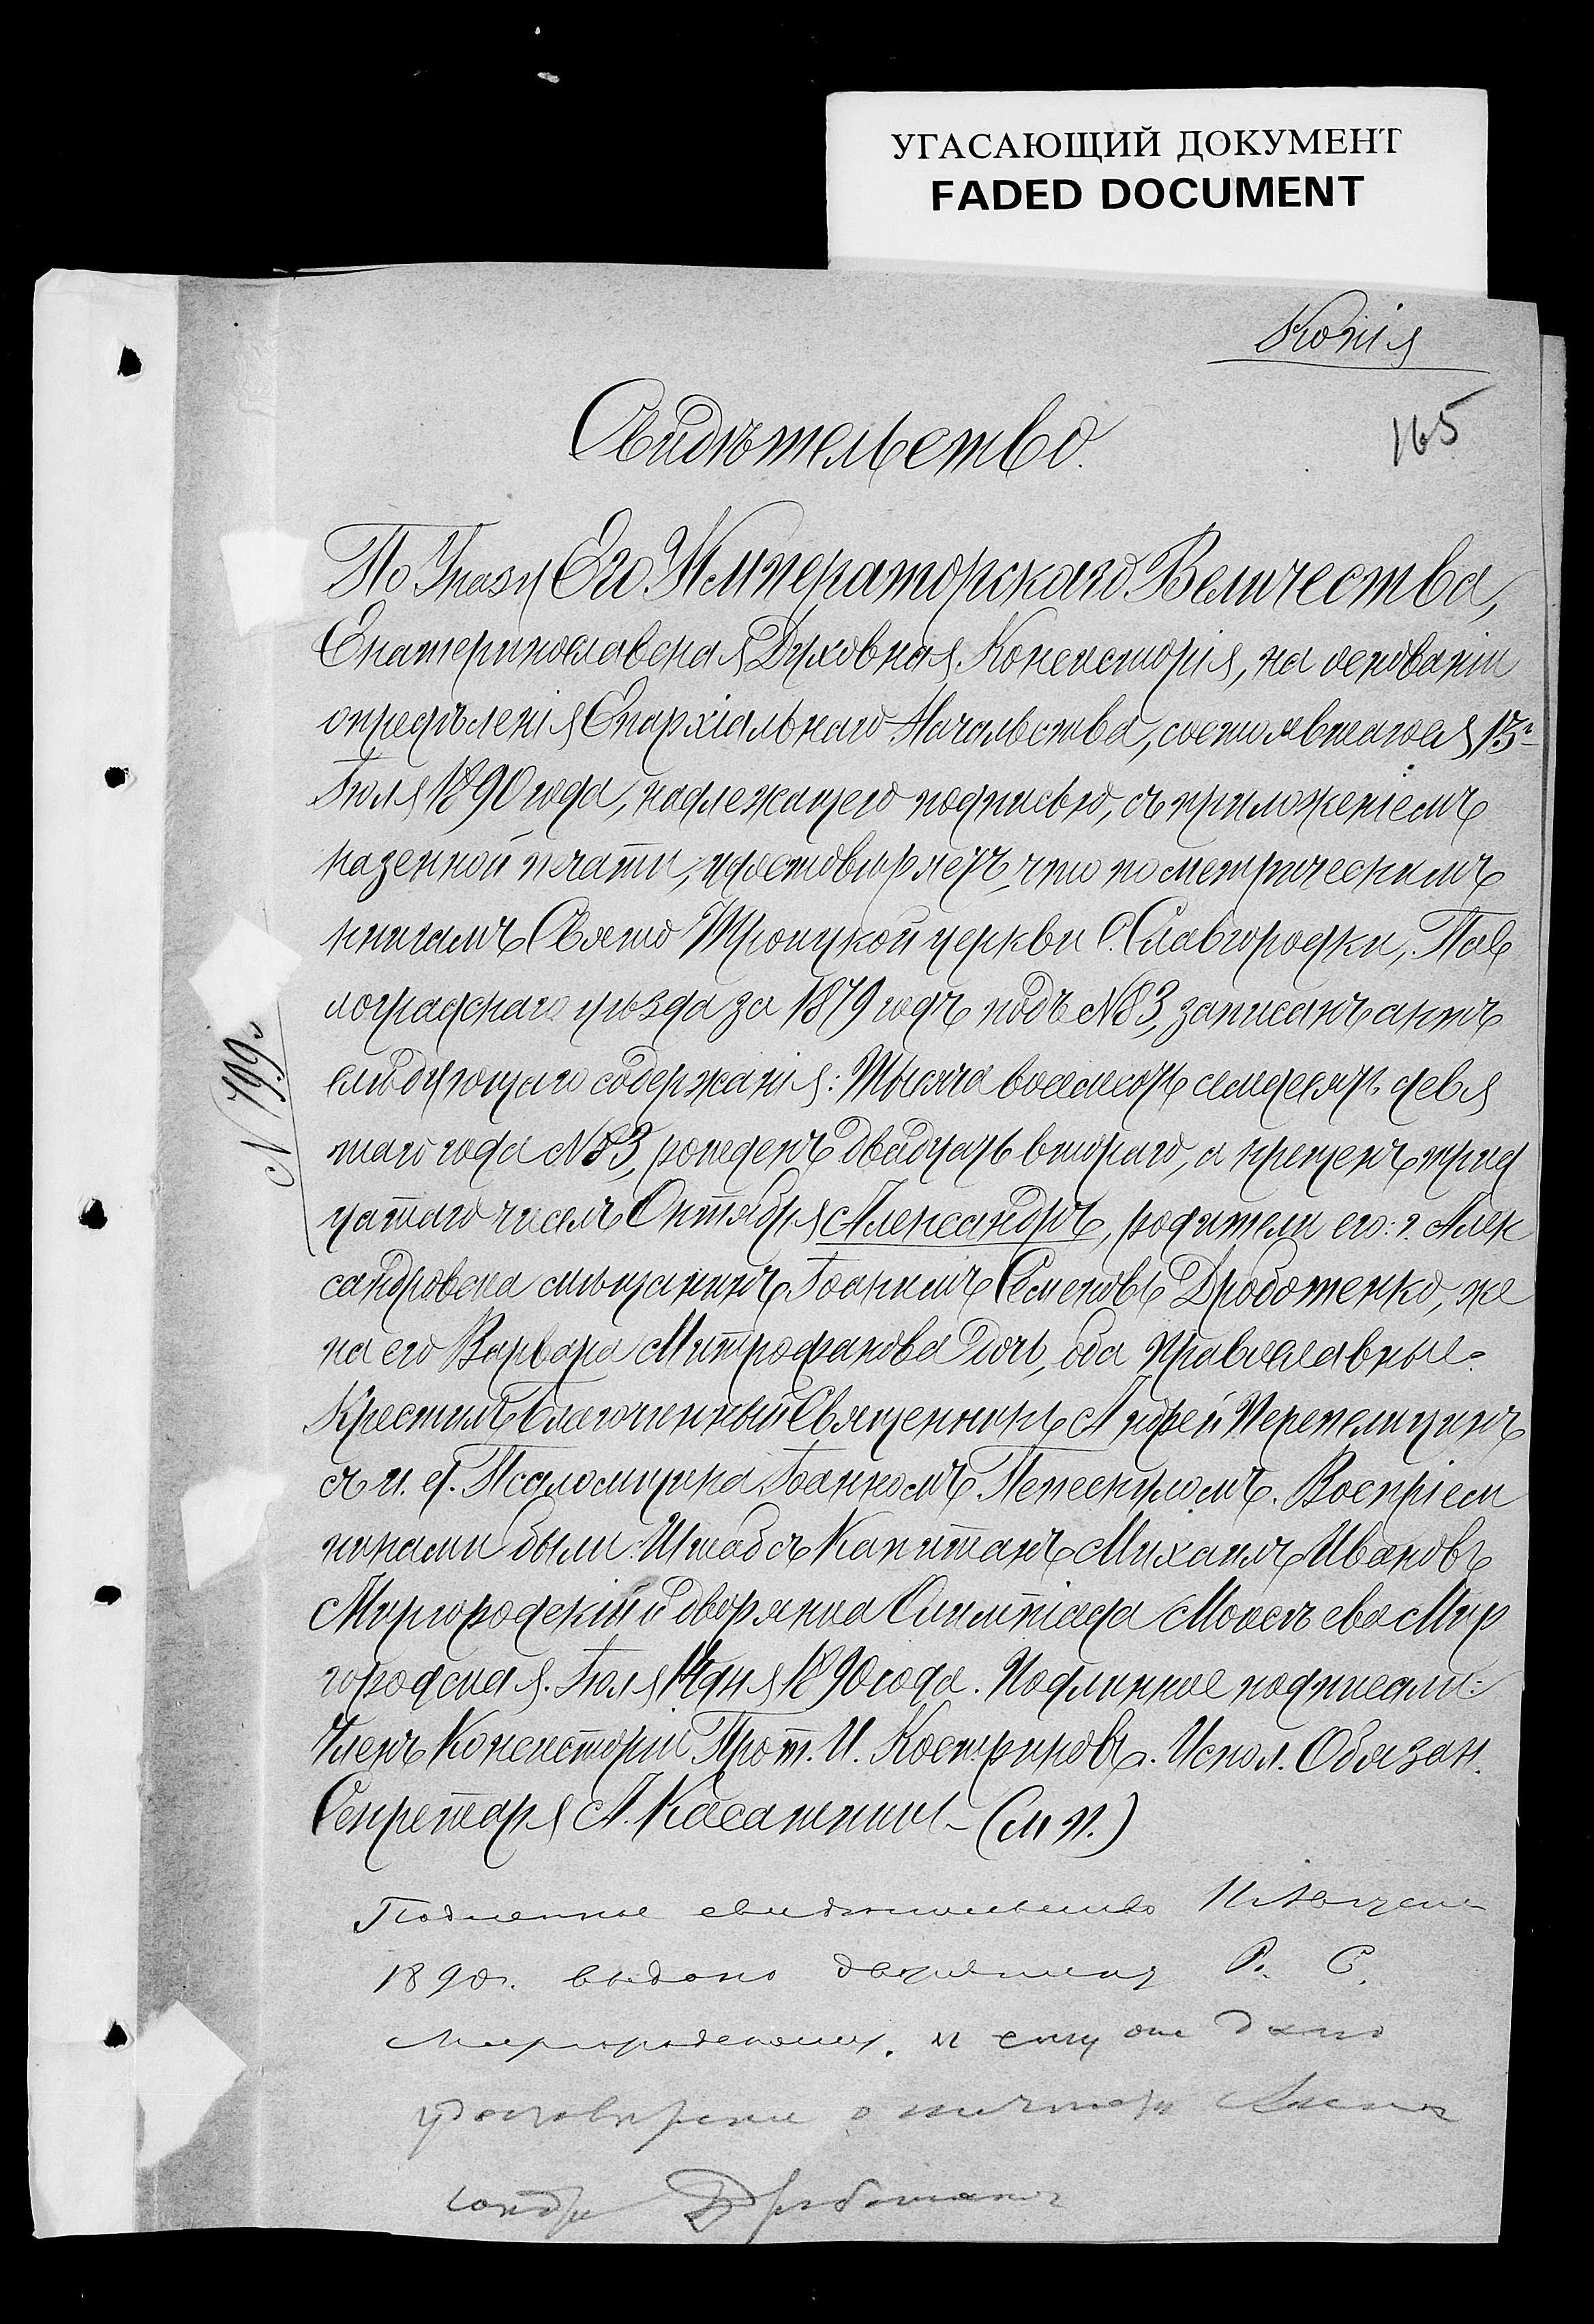 УГАСАЮЩИЙ ДОКУМЕНТ
FADED DOCUMENT
Копія
165
Свидѣтельство.
По Указу Его Императорскаго Величества,
Екатеринославская Духовная Консисторія, на основаніи
опредѣленія Епархіальнаго Начальства, состоявшагося 13
Іюля 1890 года, надлежащею подписью, съ приложеніемъ
казенной печати, удостовѣряетъ, что по метрическимъ
книгамъ Свято Троицкой церкви С. Славгородки, Пав
лоградскаго уѣзда за 1879 годъ подъ №83, записанъ актъ
слѣдующаго содержанія: Тысяча восемсотъ семдесятъ девя
таго года №83, рожденъ двадцать втораго, а крещенъ трид
цатаго чиселъ Октября Александръ, родители его: г. Алек
сандровска мѣщанинъ Іоакимъ Семеновъ Дроботенко, же
на его Варвара Митрофанова дочь, оба православные.
Крестилъ Благочинный Священникъ Андрей Перепелицинъ
съ и. д. Псаломщика Іоанномъ. Воспріем
никами были: Штабсъ Капитанъ Михаилъ Ивановъ
Миргородскій и дворянка Олимпіада Моисѣева Мир
городская. Іюля 14 дня 1890 года. Подлинное подписали:
Членъ Консисторіи Прот. И. Костриковъ. Испол. Обязан.
Секретаря А. Касаткинъ (М П.)
№ 799
Подлинное свидѣтельство
1890г. выдано дворянину С.
Миргородскому. и ему дано
удостовѣреніе о Алек
сандра Дроботенко